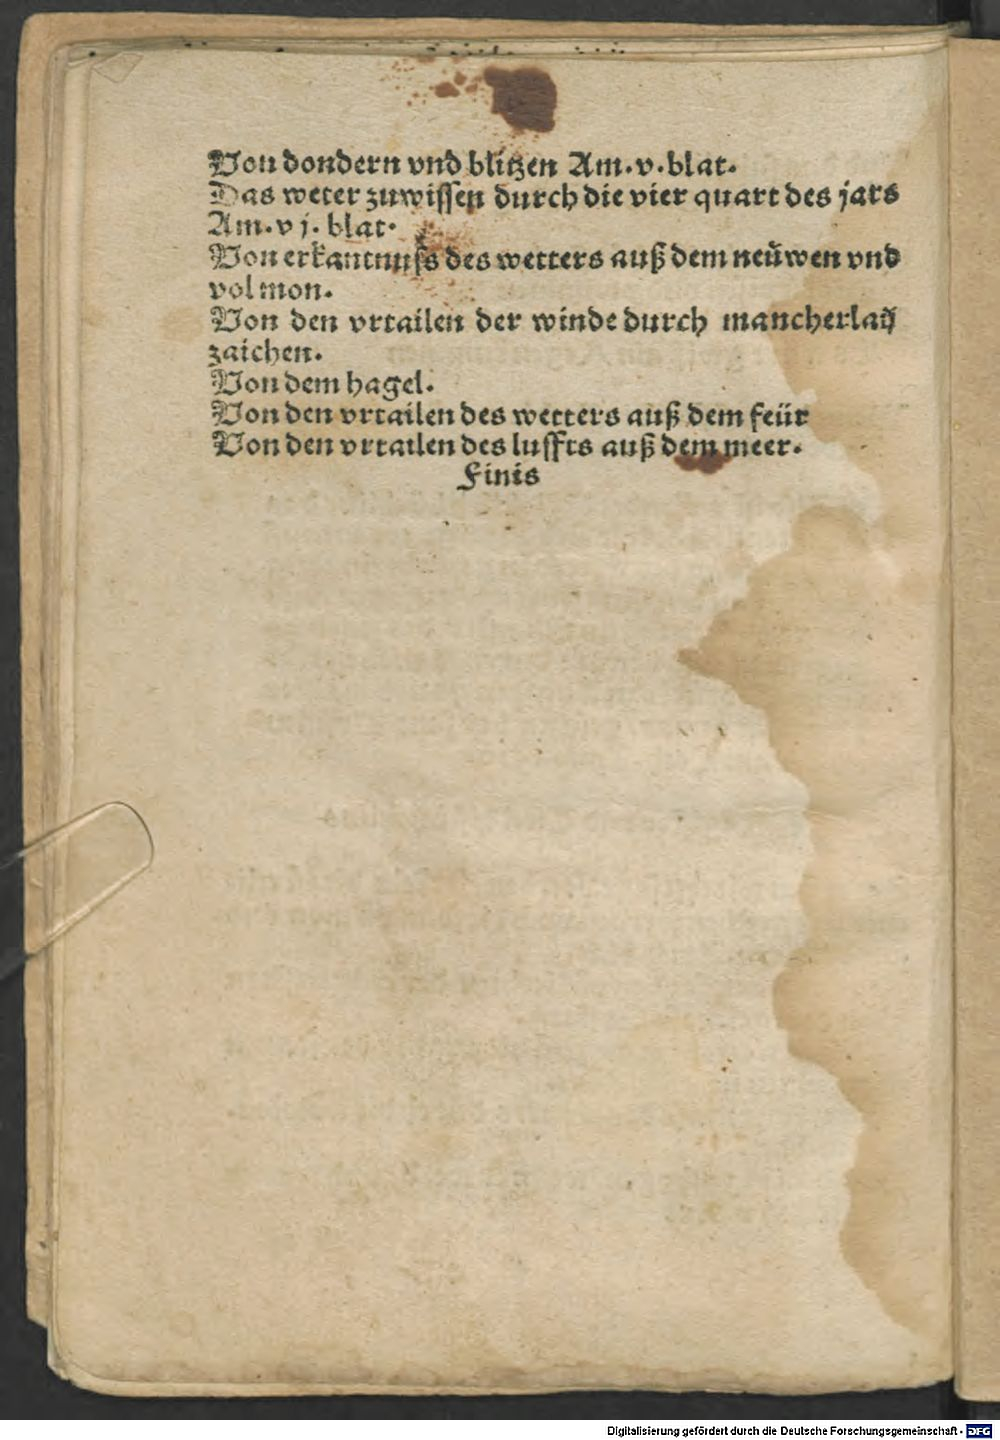 Von dondern vnd blitzen Am. v. blat.
Das weter zuwissen durch die vier quart des jars
Am. v j. blat.
Von erkantnuss des wetters auß dem neüwen vnd
vol mon.
Von den vrtailen der winde durch mancherlaÿ
zaichen.
Von dem hagel.
Von den vrtailen des wetters auß dem feür
Von den vrtailen des luffts auß dem meer.
Finis
Digitalisierung gefördert durch die Deutsche Forschungsgemeinschaft - DFG